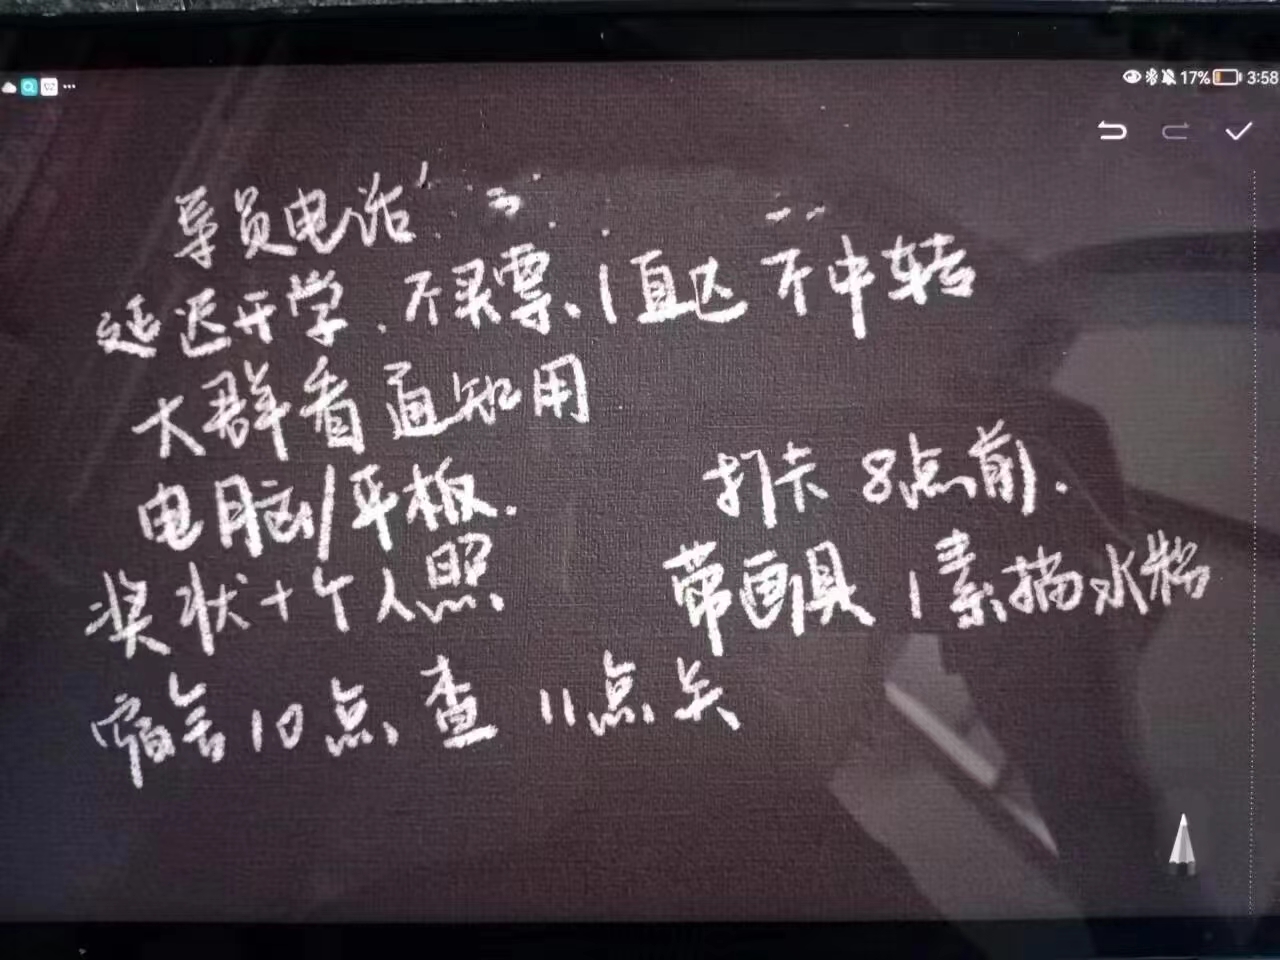 17% 3:58
导员电话
延迟开学、不买票、1直达 不中转
大群看通知用
电脑/平板.
打卡 8点前.
奖状+个人照.
带画具 1素描水粉
宿舍10点查 11点关